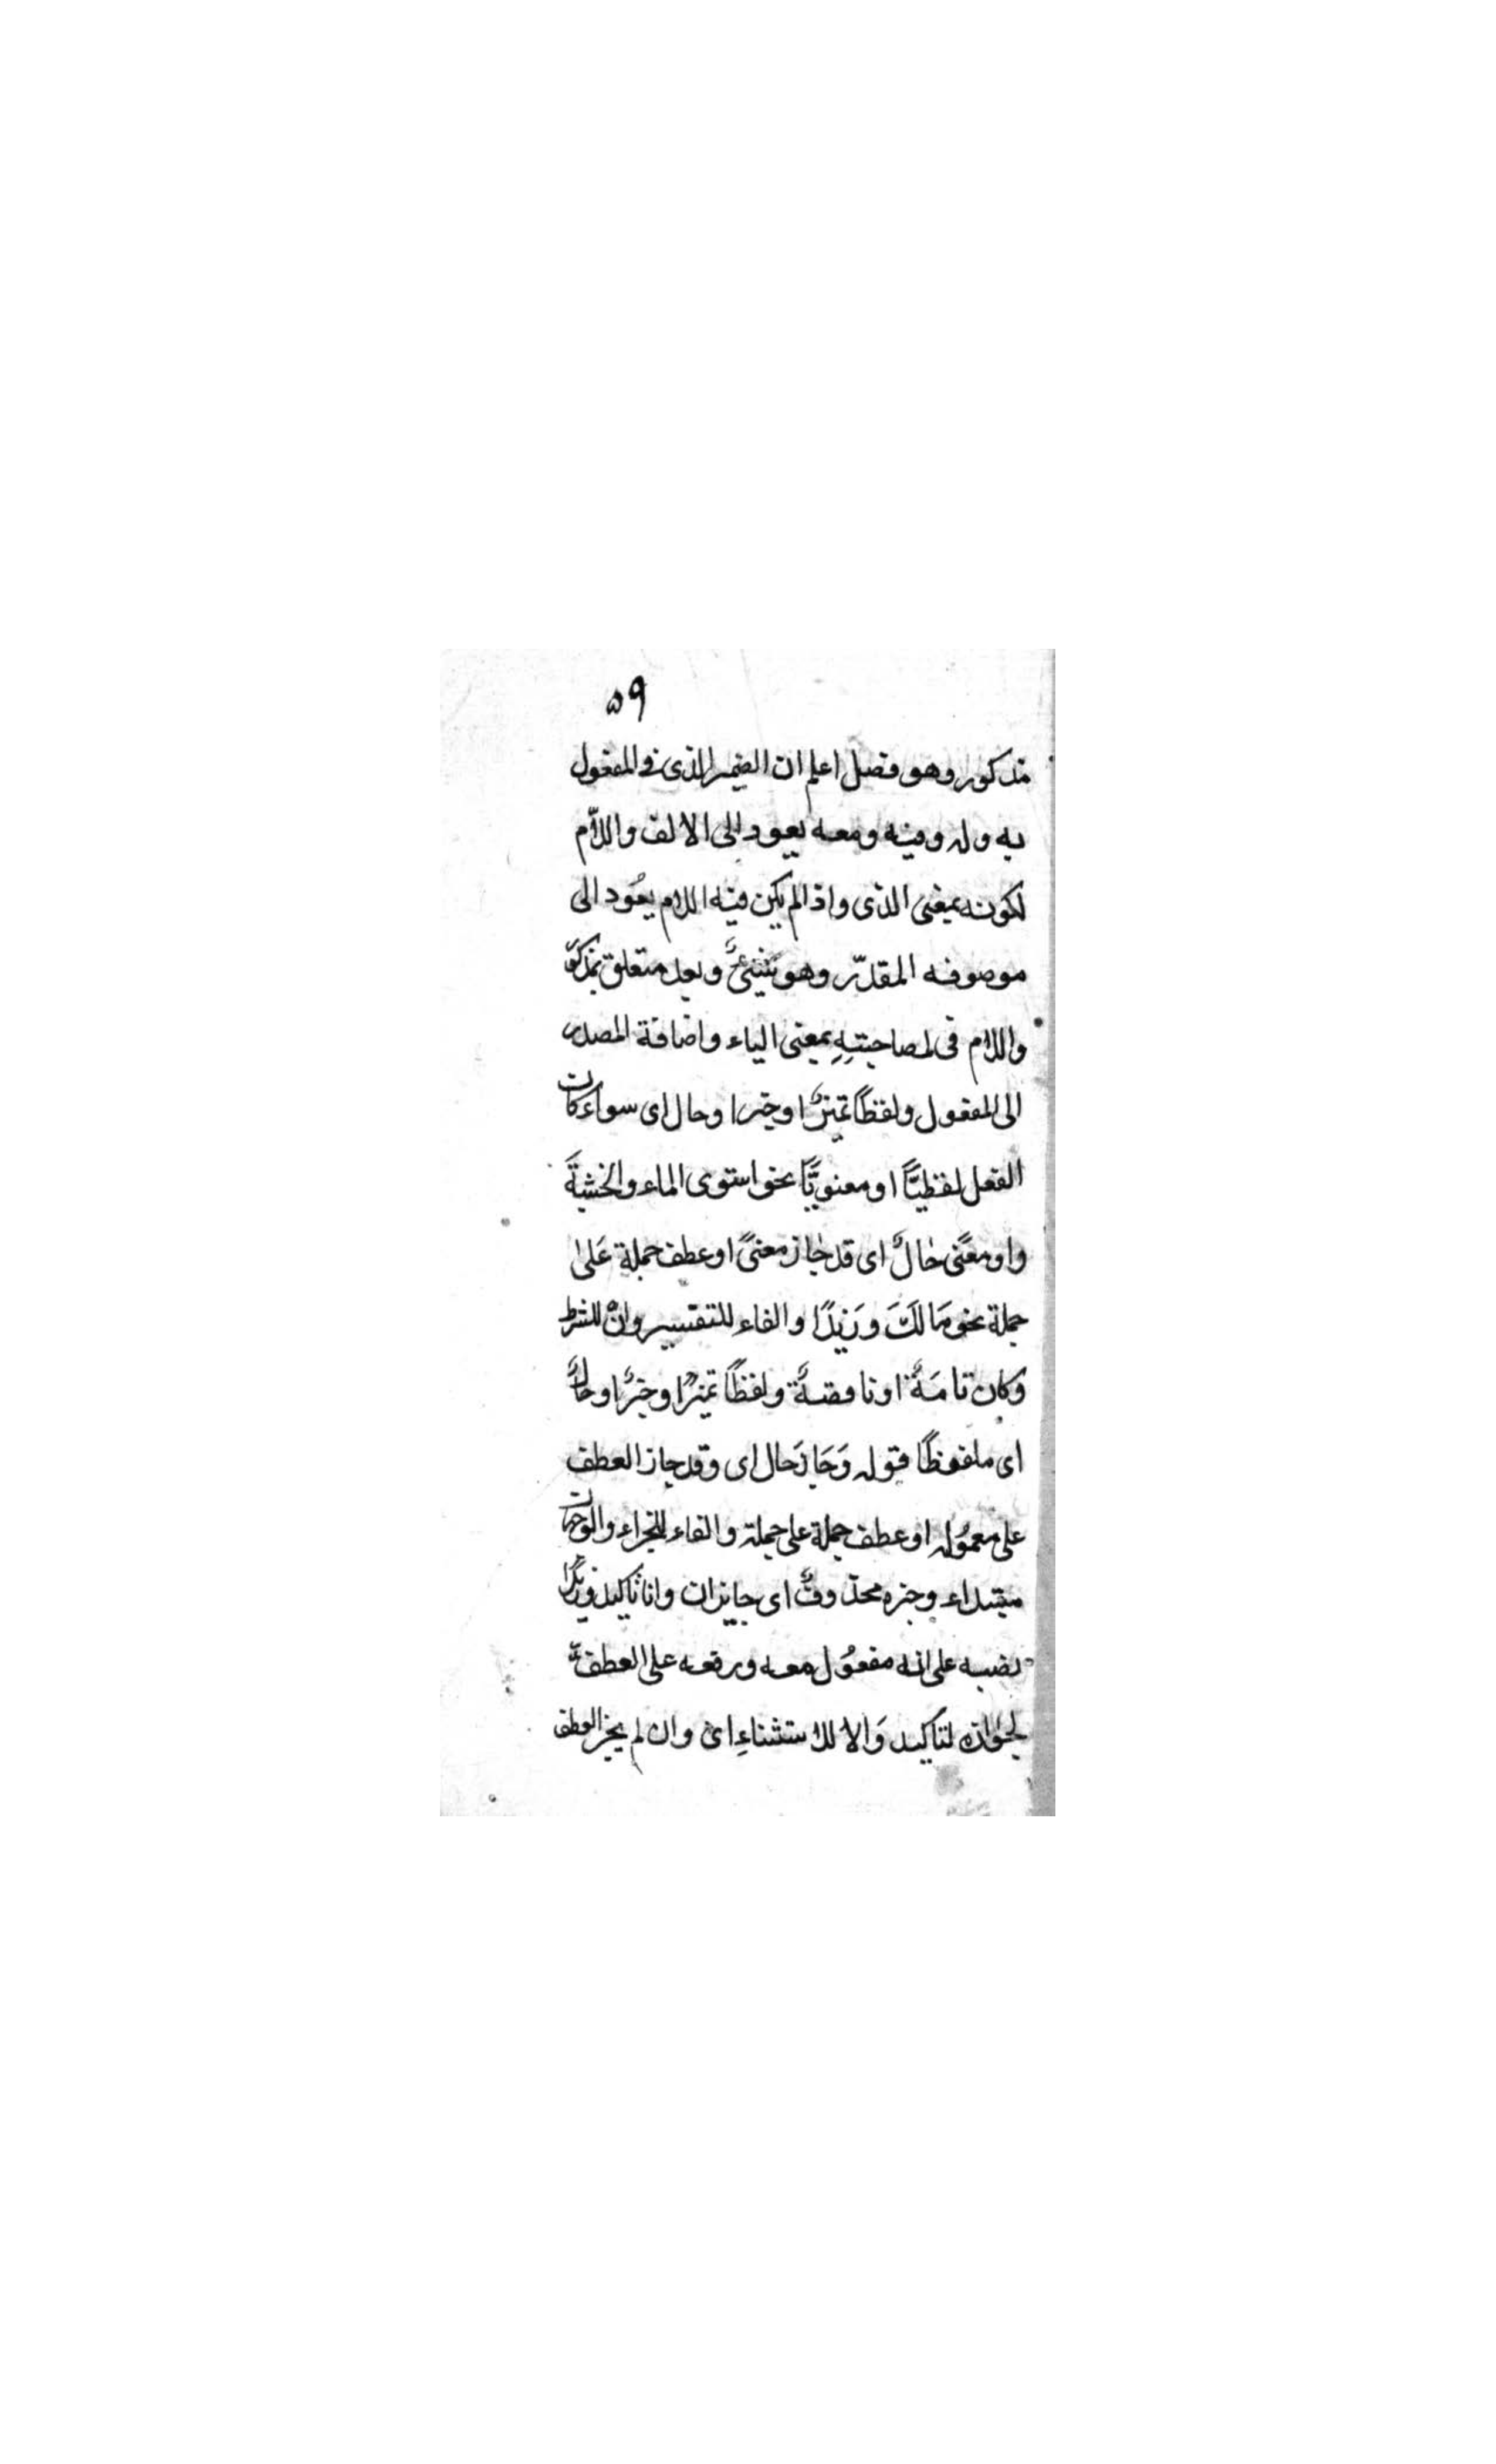 ٥٩
مذكور وهو فصل اعلم ان الضمير الذى فى المفعول
به وله وفيه ومعه يعود الى الالف واللاّم
لكونه بمعنى الذى واذا لم يكن فيه اللام يعُود الى
موصوفه المقدّر وهو شيئ وبعد متعلق بمذكور
واللام فى لمصاحبتهِ بمعنى الباء واضافة المصدر
الى المفعول ولفظاً تميزًا وخبرا وحال اى سواء كان
الفعل لفظيّاً او معنويّاً نحو استوى الماء والخشبةَ
واو معنًى حالٌ اى قد جاز معنىً او عطف جملة عَلىٰ
جملة نحو مَا لَكَ وَزَيدًا والفاء للتفسير وانْ للشرط
وكان تامَةٌ او ناقصةٌ ولفظاً تميزًا وخبرًا وحالٌ
اى ملفوظاً قوله وَجَازَ حال اى وقد جاز العطف
على معمُوله او عطف جملة على جملة والفاء للجزاء والوجهان
مبتداء وخبره محذوفٌ اى جايزان وانا تاكيد وزيدًا
نصبه على انه مفعُول معه ورفعه على العطف
لجوازه لتاكيد وَالا للاستثناءِ اى وان لم يجز العطف